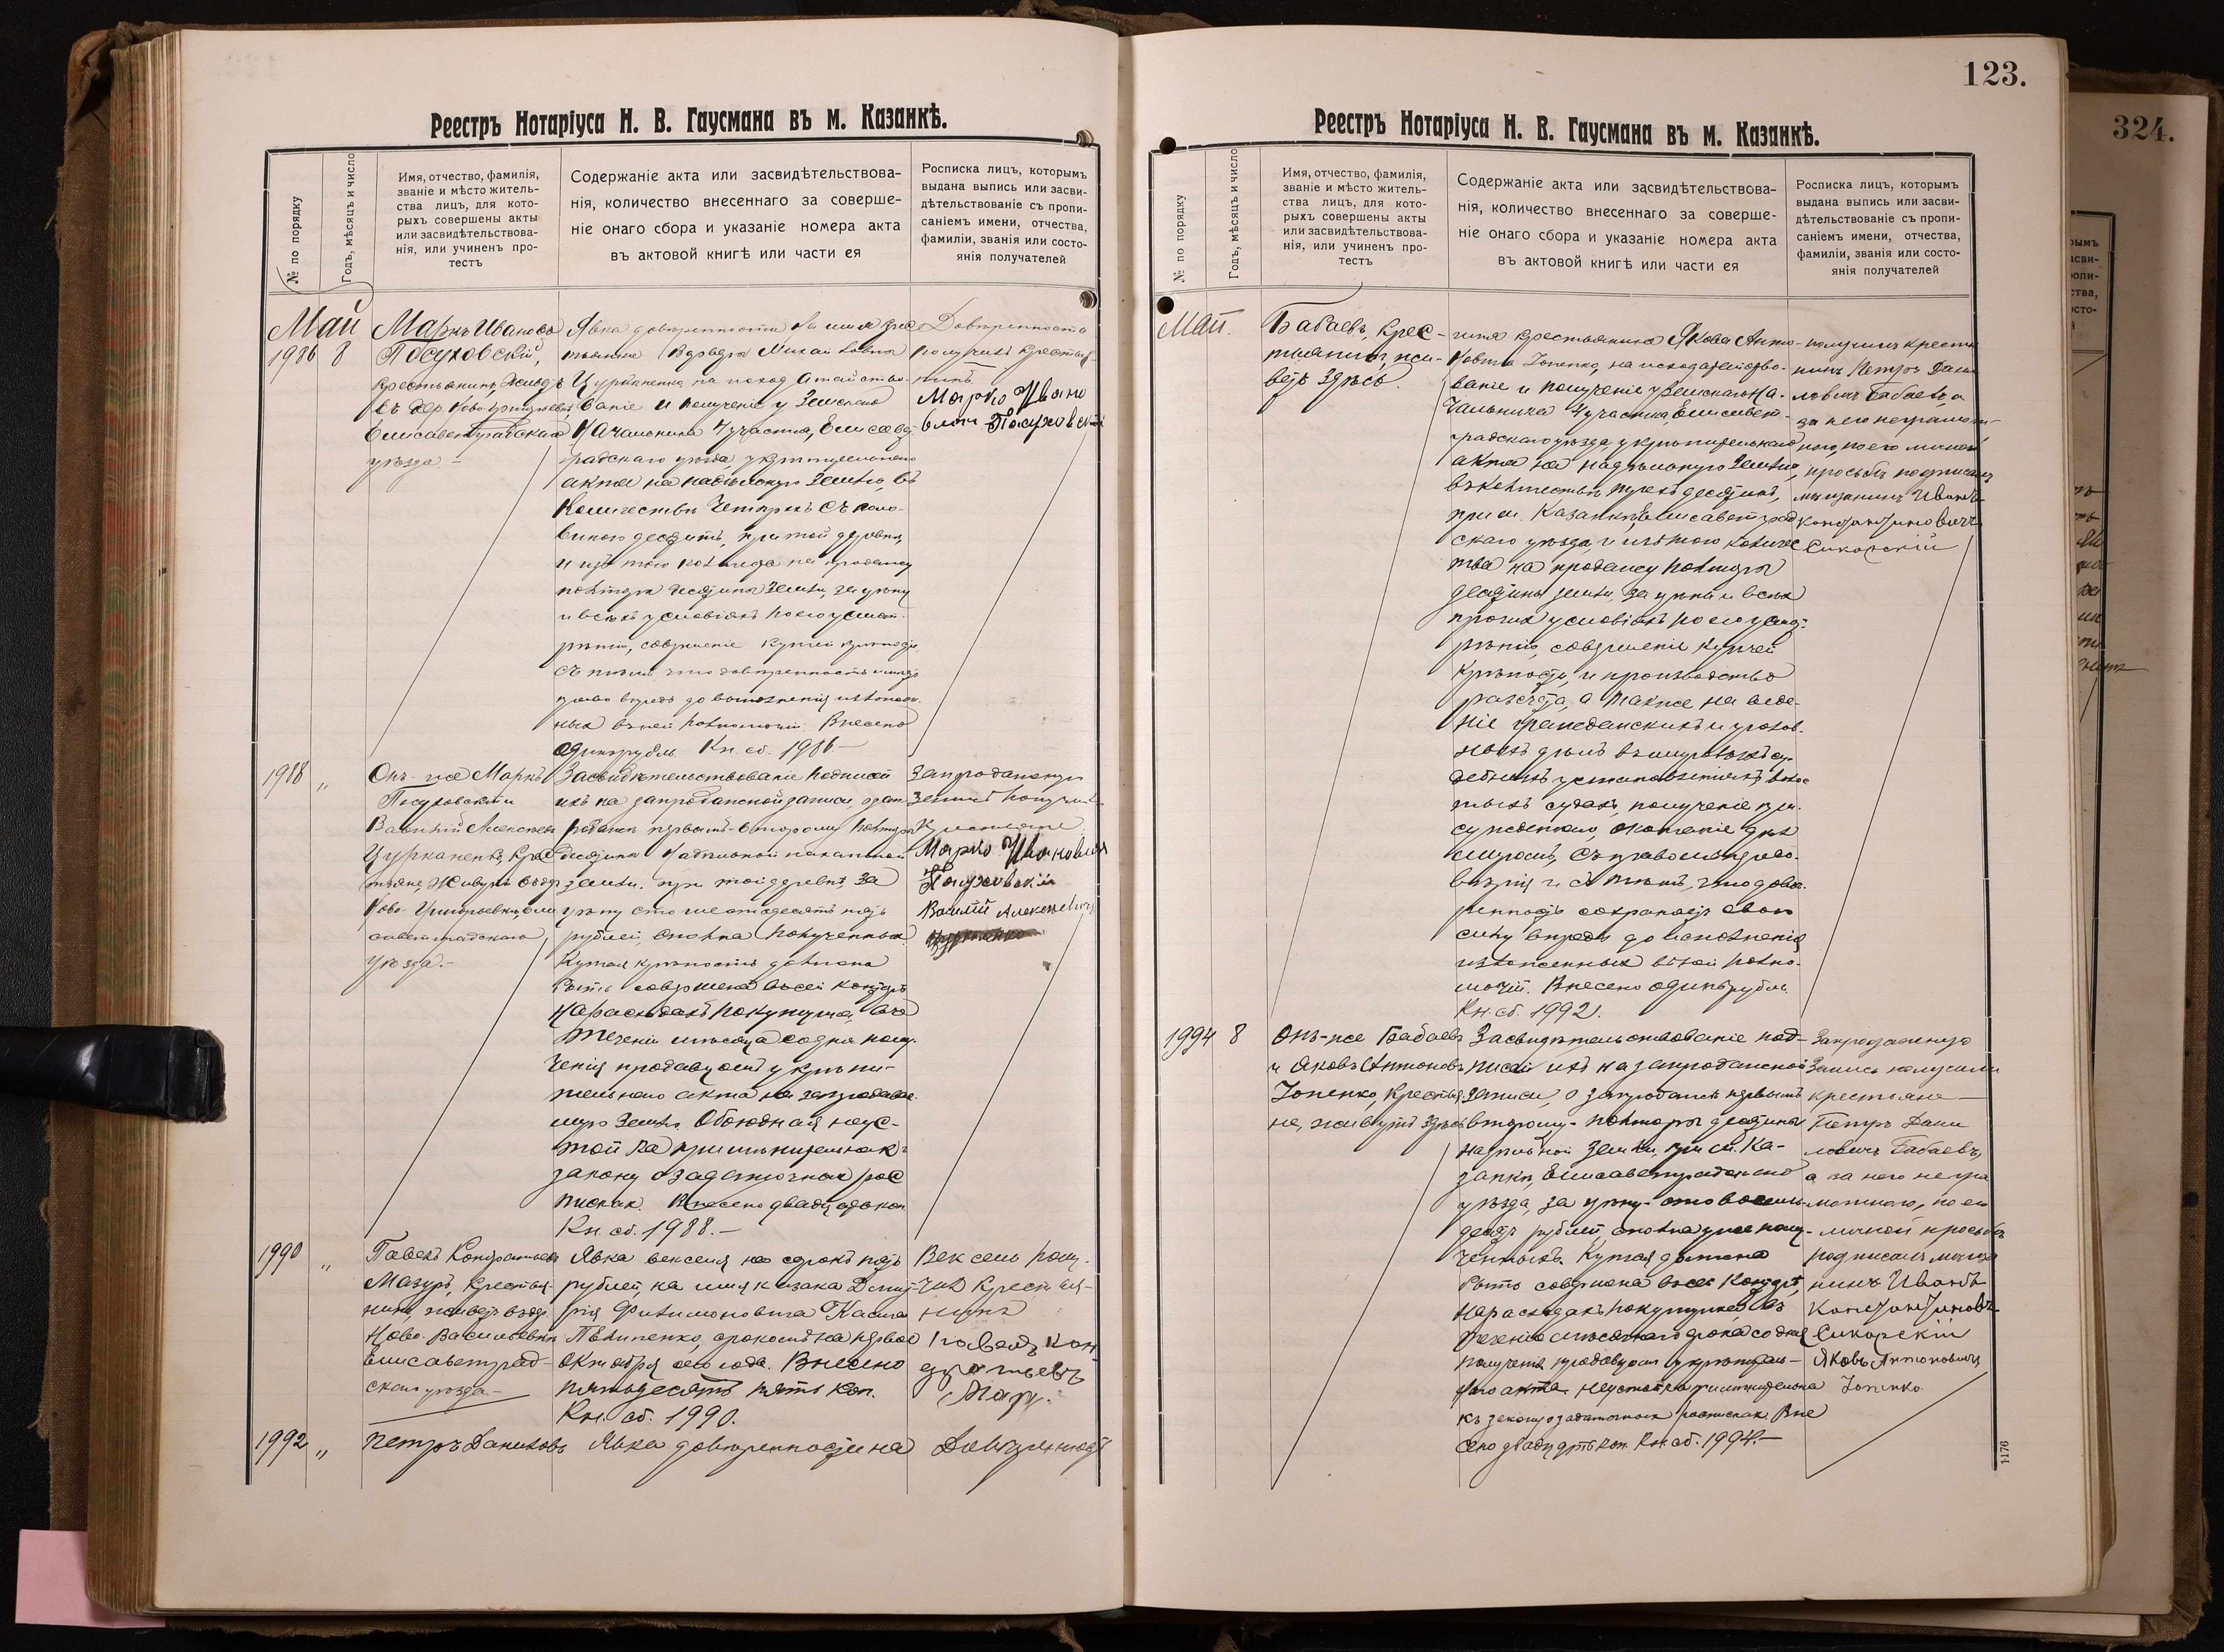 Реестръ Нотаріуса Н. В. Гаусмана въ м. Казанкѣ.
№ по порядку
Годъ, мѣсяцъ и число
Имя, отчество, фамилія,
званіе и мѣсто житель-
ства лицъ, для кото-
рыхъ совершены акты
или засвидѣтельствова-
нія, или учиненъ про-
тестъ
Содержаніе акта или засвидѣтельствова-
нія, количество внесеннаго за соверше-
ніе онаго сбора и указаніе номера акта
въ актовой книгѣ или части ея
Росписка лицъ, которымъ
выдана выпись или засви-
дѣтельствованіе съ пропи-
саніемъ имени, отчества,
фамиліи, званія или состо-
янія получателей
Май
1986 8
Маркъ Иванов
Посуховскій,
крестьянинъ, живетъ
въ дер. Ново-Григорьевкѣ
Елисаветградскаго
уѣзда.-
Явка довѣренности на имя крес
тьянина Михайловича
Цурканенка, на исходатайство-
ваніе и полученіе у Земскаго
Начальника 4 участка, Елисавет
градскаго уѣзда, укрѣпительнаго
акта на надѣльную землю, въ
количествѣ четырехъ съ поло-
виною десятинъ, при той деревнѣ,
и изъ того количества на продажу
полторы десятины земли, за цѣну
и всѣхъ условіяхъ по его усмот-
рѣнію, совершеніе купчей крѣпости
съ тѣмъ что довѣренность
впредь до исполненія изложен
ныхъ въ ней полномочій. Внесено
одинъ рубль. Кн. сб. 1986.-
Довѣренность
получилъ крестья-
нинъ
Марко Ивано
вичъ Посуховскій
1988 „
Онъ-же Маркъ
Посуховскій и
Василій Алексѣев
Цурканенко, крес
тьяне, живутъ въ дер
Ново-Григорьевкѣ, Ели
саветградскаго
уѣзда.-
Засвидѣтельствованіе подписей
ихъ на запроданной записи, о зап
роданѣ первымъ-второму полторы
десятины надѣльной пахатной
земли, при той деревнѣ, за
цѣну сто шестьдесятъ пять
рублей, сполна полученныхъ
Купчая крѣпость должна
быть совершена въ сей конторѣ
на расходахъ покупщика, въ
теченіи мѣсяца со дня полу-
ченія продавцомъ укрѣпи-
тельнаго акта на запродавае
мую землю. Обоюдная неус-
тойка примѣнительно къ
закону о задаточныхъ рос
пискахъ. Внесено двадцать коп.
Кн. сб. 1988.-
Запроданную
запись получили
крестьяне
Марко Ивановичъ
Посуховскій
Василій Алексѣевичъ
1990 „
Павелъ Кондратьевъ
Мазуръ, крестья-
нинъ, живетъ въ дер
Ново-Васильевкѣ
Елисаветград-
скаго уѣзда-
Явка векселя на сорокъ пять
рублей, на имя казака Дмит
рія Филимоновича Касьяна
Пилипенко, срокомъ на первое
октября сего года. Внесено
пятьдесятъ пять коп.
Кн. сб. 1990.
Вексель полу-
чилъ крестья-
нинъ
Павелъ Кон
дратьевъ
Мазур.
1992 „
Петръ Данилов
Явка довѣренности на
Довѣренность
123.
Реестръ Нотаріуса Н. В. Гаусмана въ м. Казанкѣ.
№ по порядку
Годъ, мѣсяцъ и число
Имя, отчество, фамилія,
званіе и мѣсто житель-
ства лицъ, для кото-
рыхъ совершены акты
или засвидѣтельствова-
нія, или учиненъ про-
тестъ
Содержаніе акта или засвидѣтельствова-
нія, количество внесеннаго за соверше-
ніе онаго сбора и указаніе номера акта
въ актовой книгѣ или части ея
Росписка лицъ, которымъ
выдана выпись или засви-
дѣтельствованіе съ пропи-
саніемъ имени, отчества,
фамиліи, званія или состо-
янія получателей
Май.
Бабаевъ, крес-
тьянинъ, жи-
ветъ здѣсь.
имя крестьянина Якова Анто-
новича Зопенко, на исходатайство-
ваніе и полученіе у Земскаго На-
чальника 4 участка, Елисавет-
градскаго уѣзда, укрѣпительнаго
акта на надѣльную землю,
въ количествѣ трехъ десятинъ,
при м. Казанкѣ, Елисаветград
скаго уѣзда, и изъ того количес
тва на продажу полторы
десятины земли, за цѣну и всѣхъ
прочихъ условіяхъ по его усмот-
рѣнію, совершеніе купчей
крѣпости, и производство
разсчета, а также на веде-
ніе гражданскихъ и уголов-
ныхъ дѣлъ въ мировыхъ су-
дебныхъ установленіяхъ, волос
тныхъ судахъ, полученіе при-
сужденнаго, окончаніе дѣлъ
миромъ, съ правомъ передо-
вѣрія и съ тѣмъ, что довѣ-
ренность сохраняетъ свою
силу впредь до исполненія
изложенныхъ въ ней полно-
мочій. Внесено одинъ рубль.
Кн. сб. 1992.
получилъ крестья
нинъ Петръ Дани
ловичъ Бабаевъ, а
за него неграмот-
наго, по его личной
просьбѣ подписалъ
мѣщанинъ Иванъ
Константиновичъ
Сикорскій
1994 8
Онъ-же Бабаевъ
и Яковъ Антоновъ
Зопенко, крестья
не, живутъ здѣсь
Засвидѣтельствованіе под-
писей ихъ на запроданной
записи, о запроданѣ первымъ
второму полторы десятины
надѣльной земли, при м. Ка-
занкѣ, Елисаветградскаго
уѣзда, за цѣну сто восемь-
десятъ рублей, сполна уже полу-
ченныхъ. Купчая должна
быть совершена въ сей конторѣ,
на расходахъ покупщика, въ
теченіе мѣсячнаго срока со дня
полученія продавцомъ укрѣпитель-
наго акта. Неустойка примѣнительна
къ закону о задаточныхъ роспискахъ. Вне
сено двадцать коп. Кн. сб. 1994.-
Запроданную
запись получили
крестьяне
Петръ Дани
ловичъ Бабаевъ,
а за него негра
мотнаго, по его
личной просьбѣ
подписалъ мѣща
нинъ Иванъ
Константиновъ
Сикорскій
Яковъ Антоновичъ
Зопенко
1176
324.